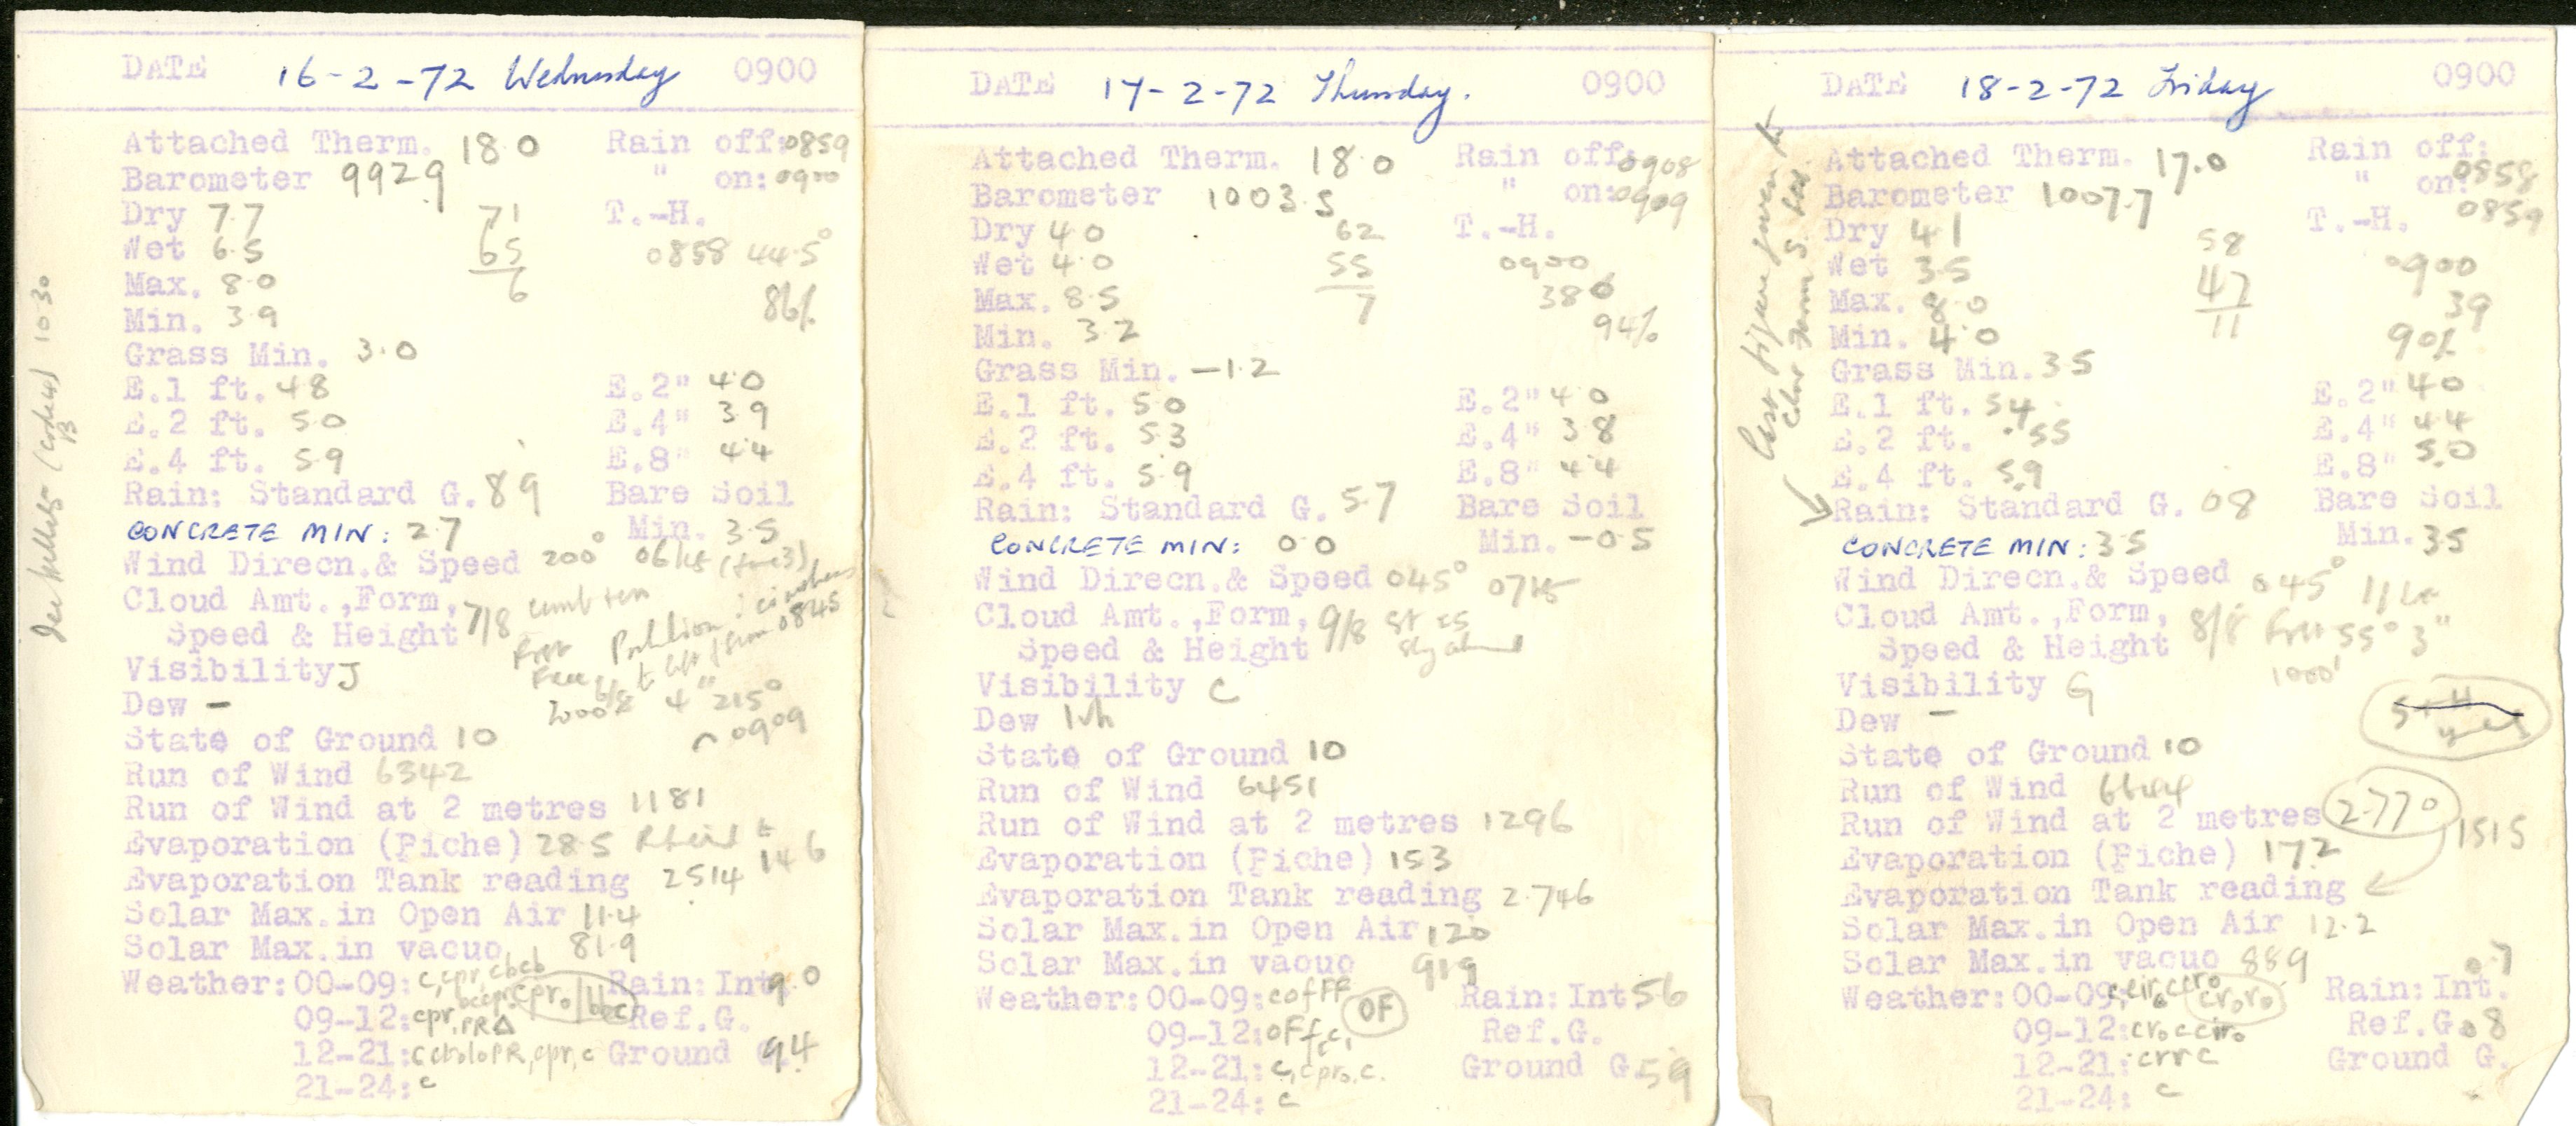 DATE 16-2-72 Wednesday 0900
Attached Therm. 18.0 Rain off: 0859
Barometer 992.9 " on: 0900
Dry 7.7 71 T.-H.
Wet 6.5 65 0858 44.5°
Max. 8.0 6 86%
Min. 3.9
Grass Min. 3.0
E.1 ft. 4.8 E.2" 4.0
E.2 ft. 5.0 E.4" 3.9
E.4 ft. 5.9 E.8" 4.4
Rain: Standard G. 8.9 Bare Soil
CONCRETE MIN: 2.7 Min. 3.5
Wind Direcn.& Speed 200° 06
Cloud Amt.,Form,
Speed & Height 7/8 0845
Visibility J
Dew - 2000' 6/8 4" 215°
State of Ground 10 0909
Run of Wind 6342
Run of Wind at 2 metres 1181
Evaporation (Piche) 28.5 14.6
Evaporation Tank reading 2.514
Solar Max.in Open Air 11.4
Solar Max.in vacuo 81.9
Weather: 00-09: Rain: Int. 9.0
09-12: Ref.G.
12-21: Ground G. 9.4
21-24: c
1030
DATE 17-2-72 Thursday. 0900
Attached Therm. 18.0 Rain off: 0908
Barometer 1003.5 " on: 0909
Dry 4.0 62 T.-H.
Wet 4.0 55 0900
Max. 8.5 7 38
Min. 3.2 94%
Grass Min. -1.2
E.1 ft. 5.0 E.2" 4.0
E.2 ft. 5.3 E.4" 3.8
E.4 ft. 5.9 E.8" 4.4
Rain: Standard G. 5.7 Bare Soil
CONCRETE MIN: 0.0 Min. -0.5
Wind Direcn.& Speed 045° 07
Cloud Amt.,Form,
Speed & Height 9/8 St
Visibility C
Dew
State of Ground 10
Run of Wind 6451
Run of Wind at 2 metres 1296
Evaporation (Piche) 15.3
Evaporation Tank reading 2.746
Solar Max.in Open Air 12.0
Solar Max.in vacuo 91.9
Weather: 00-09: cofFF OF Rain: Int 5.6
09-12: oFfc, Ref.G.
12-21: c, cpr₀, c. Ground G. 5.9
21-24: c
DATE 18-2-72 Friday 0900
Attached Therm. 17.0 Rain off: 0858
Barometer 1007.7 " on: 0859
Dry 4.1 58 T.-H.
Wet 3.5 47 0900
Max. 8.0 11 39
Min. 4.0 90%
Grass Min. 3.5
E.1 ft. 5.4 E.2" 4.0
E.2 ft. 5.5 E.4" 4.4
E.4 ft. 5.9 E.8" 5.0
Rain: Standard G. 0.8 Bare Soil
CONCRETE MIN: 3.5 Min. 3.5
Wind Direcn.& Speed 045° 11
Cloud Amt.,Form,
Speed & Height 8/8 55° 3"
Visibility G 1000'
Dew -
State of Ground 10
Run of Wind
Run of Wind at 2 metres 1515
Evaporation (Piche) 17.2
Evaporation Tank reading 2.770
Solar Max.in Open Air 12.2
Solar Max.in vacuo 88.9
Weather: 00-09: Rain: Int. 0.7
09-12: Ref.G. 0.8
12-21: crrc Ground G.
21-24: c